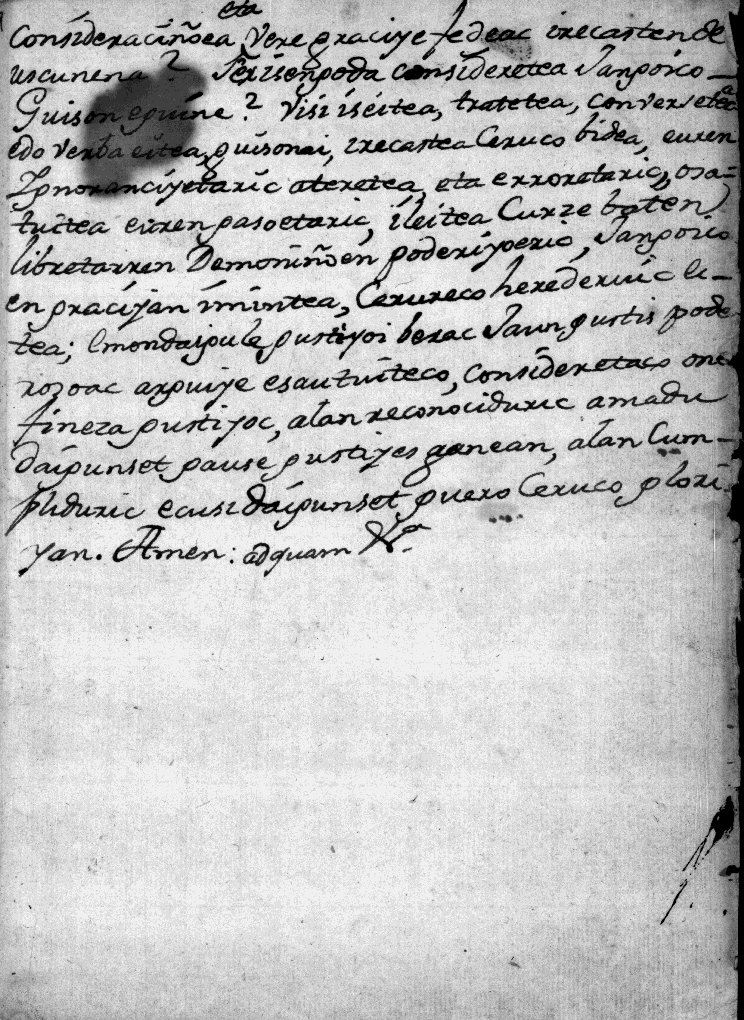 eta
Consideraciñoea, vere graciye fedeac iracasten de
uscunena? Ser isengoda consideretea Jangoico-
Guison eguine? visi iseitea, tratetea, converseteā
edo verba eitea guisonai, iracastea Ceruco bidea, euren
Ignoranciyetaric ateretea, eta erroretaric, osa=
tuitea euren gasoetaric, ileitea Curze baten,
libretarren Demoniñoen poderiyoeric, Jangoico
en graciyan imintea, Cerureco herederuic ei-
tea; Emondaigule gustiyoi berac Jaun gustis pode-
rozoac arguiye esautuiteco, consideretaco one
fineza gustiyoc, alan reconociduric amadu
daigunset gause gustiyes ganean, alan Cum-
pliduric ecusi daigunset guero Ceruco glori
yan. Amen: ad quam &a.